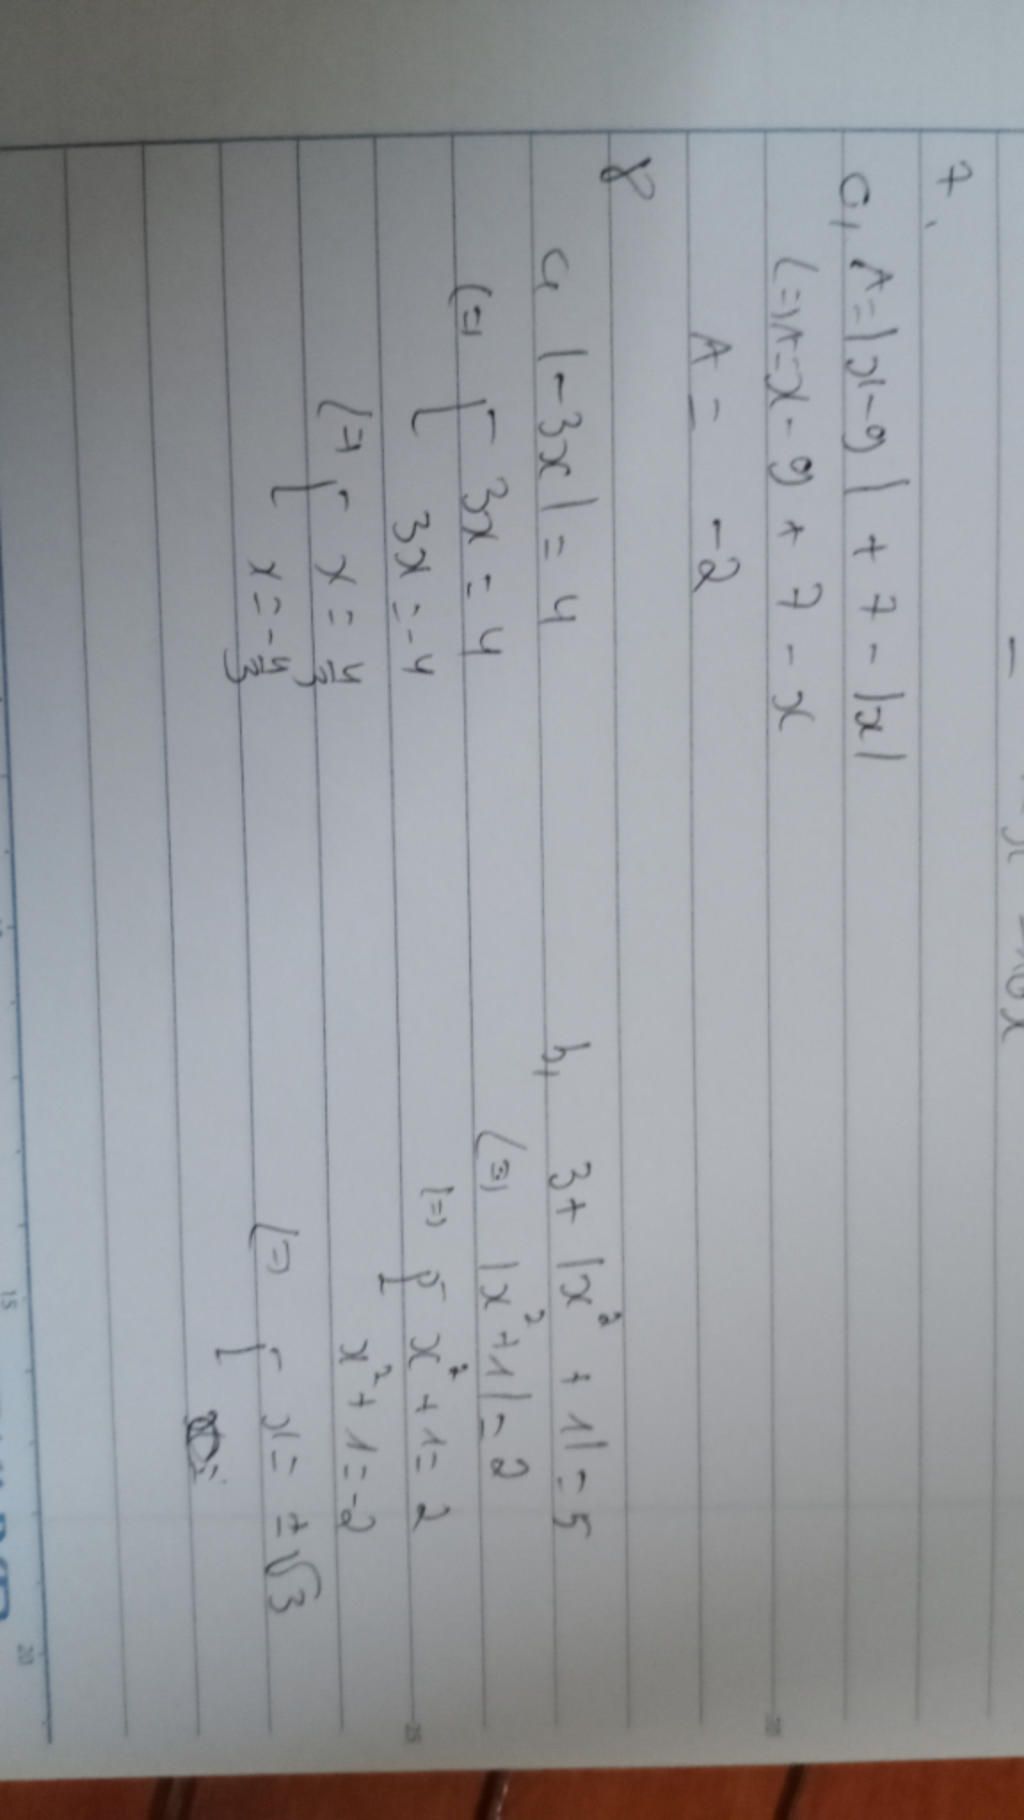 7,
c, A = |x-9| + 7 - |x|
(=) A = x - 9 + 7 - x
A = -2
8
a, |-3x| = 4
(=) [ 3x = 4
3x = -4
(=) [ x = 4/3
x = -4/3
b, 3 + |x² + 1| = 5
(=) |x² + 1| = 2
(=) [ x² + 1 = 2
x² + 1 = -2
(=) [ x = ±√3
15
20